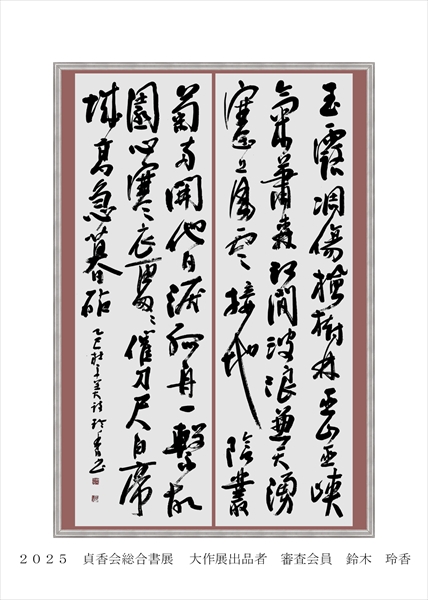 玉露凋傷楓樹林巫山巫峡
氣蕭森江間波浪兼天湧
塞上風雲接地陰叢
菊両開他日涙孤舟一繋故
園心寒衣處々催刀尺白帝
城高急暮砧 乙巳 杜子美詩 玲香書
2025 貞香会総合書展 大作展出品者 審査会員 鈴木 玲香